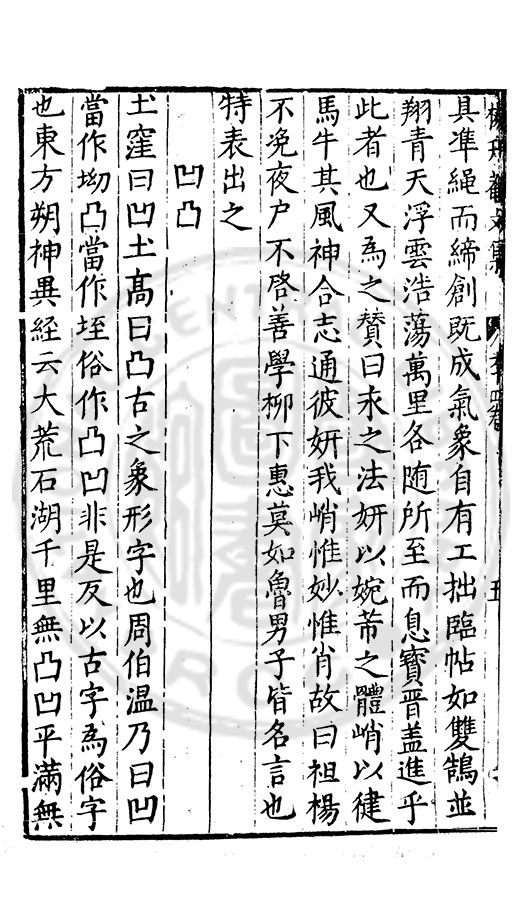 具準繩而締創既成氣象自有工拙臨帖如雙鵠並
翔青天浮雲浩蕩萬里各随所至而息寶晉盖進乎
此者也又為之賛曰永之法姸以婉芾之體峭以徤
馬牛其風神合志通彼姸我峭惟妙惟肖故曰袒楊
不浼夜户不啓善學柳下惠莫如魯男子皆名言也
特表出之
凹凸
土窪曰凹土髙曰凸古之象形字也周伯温乃曰凹
當作坳凸當作垤俗作凸凹非是反以古字為俗字
也東方朔神異経云大荒石湖千里無凸凹平滿無